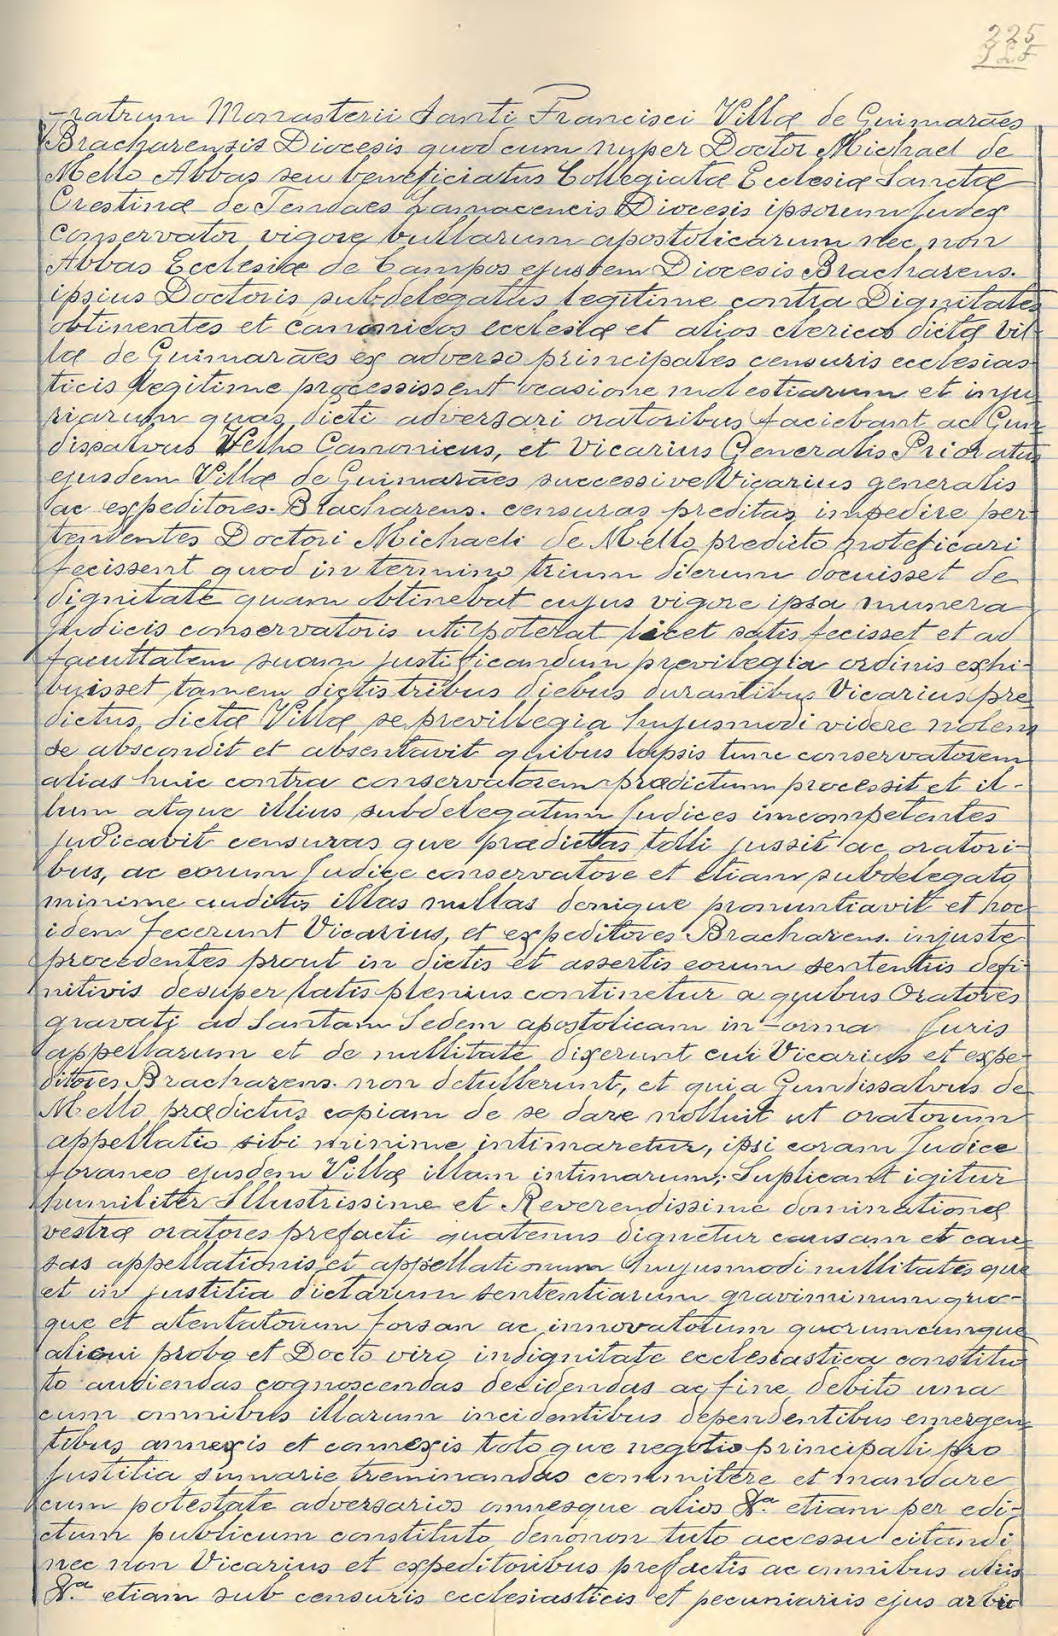 225
Fratrum Monasterii Santi Francisci Villæ de Guimarães
Bracharensis Diocesis quod cum nuper Doctor Michael de
Mello Abbas seu beneficiatus Collegiatæ Ecclesiæ Sanctæ
Crestinæ de Tendaes Lamacencis Diocesis ipsorum Judex
conservator vigore bullarum apostolicarum nec non
Abbas Ecclesiæ de Campos ejusdem Diocesis Bracharens.
ipsius Doctoris subdelegatus legitime contra Dignitates
obtinentes et canonicos ecclesiæ et alios clericos dictæ vil-
læ de Guimarães ex adverso principales censuris ecclesias-
ticis legitime processissent ocasione molestiarum et inju-
riarum quas dicti adversari oratoribus faciebant ac Gun-
dissalvus Velho Canonicus, et Vicarius Generalis Prioratus
ejusdem Villæ de Guimarães successive Vicarius generalis
ac expeditores Bracharens. censuras preditas impedire per-
tendentes Doctori Michaeli de Mello predicto noteficari
fecissent quod in termino trium dierum docuisset de
dignitate quam obtinebat cujus vigore ipsa munera
Judicis conservatoris uti poterat licet satis fecisset et ad
facultatem suam justificandum previlegia ordinis exhi-
buisset tamen dictis tribus diebus durantibus Vicarius pre-
dictus, dictæ Villæ se previllegia hujusmodi videre nolens
se abscondit et absentavit quibus lapsis tunc conservatorem
alias huic contra conservatorem prædictum processit et il-
lum atque illius subdelegatum Judices imcompetentes
judicavit censuras que prædictas tolli jussit ac oratori-
bus, ac eorum Judice conservatore et etiam subdelegato
minime auditis illas nullas denique pronuntiavit et hoc
idem fecerunt Vicarius, et expeditores Bracharens. injuste
procedentes prout in dictis et assertis eorum sententiis defi-
nitivis desuper latis plenius continetur a quibus Oratores
gravati ad Santam Sedem apostolicam in -orma Juris
appellarum et de nullitate dixerunt cui Vicarius et expe-
ditores Bracharens. non detullerunt, et quia Gundissalvus de
Mello prædictus copiam de se dare nolluit ut oratorum
appellatio sibi minime intimaretur, ipsi coram Judice
foraneo ejusdem Villæ illam intimarum; Suplicant igitur
humiliter Illustrissime et Reverendissime dominationæ
vestræ oratores prefacti quatenus dignetur causam et cau-
sas appellationis et appellationum hujusmodi nullitatis que
et in justitia dictarum sententiarum graviminum quo-
que et atentatorum forsan ac innovatorum quorumcumque
alicui probo et Docto viro indignitate ecclesiastica constitu-
to audiendas cognoscendas decidendas ac fine debito una
cum omnibus illarum incidentibus dependentibus emergen-
tibus annexis et connexis toto que negotio principali pro
Justitia sumarie treminandas commitere et mandare
cum potestate adversarios omnesque alios &.ª etiam per edi-
ctum publicum constituto denonon tuto accessu citandi
nec non Vicarius et expeditoribus prefactis ac omnibus aliis
&.ª etiam sub censuris ecclesiasticis et pecuniariis ejus arbi